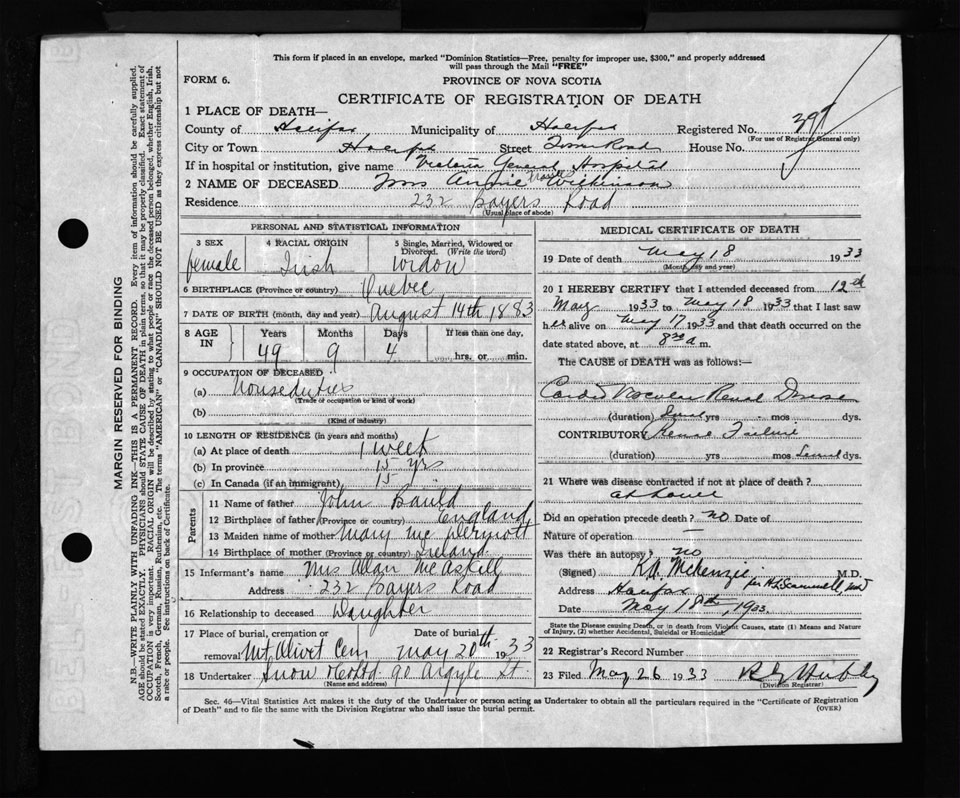 This form if placed in an envelope, marked "Dominion Statistics—Free, penalty for improper use, $300," and properly addressed
will pass through the Mail "FREE"
FORM 6.
PROVINCE OF NOVA SCOTIA
CERTIFICATE OF REGISTRATION OF DEATH
1 PLACE OF DEATH—
County of Halifax Municipality of Halifax Registered No. 391
(For use of Registrar General only)
City or Town Halifax Street Tower Road House No.
If in hospital or institution, give name Victoria General Hospital
2 NAME OF DECEASED Mrs Annie Wilkinson
Residence 232 Bayers Road
(Usual place of abode)
PERSONAL AND STATISTICAL INFORMATION
3 SEX female
4 RACIAL ORIGIN Irish
5 Single, Married, Widowed or Divorced. (Write the word) widow
6 BIRTHPLACE (Province or country) Quebec
7 DATE OF BIRTH (month, day and year) August 14th 1883
8 AGE IN Years 49 Months 9 Days 4 If less than one day, hrs. or min.
9 OCCUPATION OF DECEASED
(a) Houseduties
(Trade or occupation or kind of work)
(b)
(Kind of industry)
10 LENGTH OF RESIDENCE (in years and months)
(a) At place of death 1 week
(b) In province 15 yrs
(c) In Canada (if an immigrant) 15
Parents
11 Name of father John Bauld
12 Birthplace of father (Province or country) England
13 Maiden name of mother Mary McDermott
14 Birthplace of mother (Province or country) Ireland
15 Informant's name Mrs Allan McAskill
Address 232 Bayers Road
16 Relationship to deceased Daughter
17 Place of burial, cremation or removal Mt Olivet Cem Date of burial May 20th 1933
18 Undertaker Snow & Co Ltd. 90 Argyle St.
(Name and address)
MEDICAL CERTIFICATE OF DEATH
19 Date of death May 18 1933
(Month, day and year)
20 I HEREBY CERTIFY that I attended deceased from 12th
May 1933 to May 18 1933 that I last saw
her alive on May 17 1933 and that death occurred on the
date stated above, at 8 30 a m.
The CAUSE of DEATH was as follows:—
Cardio Vascular Renal Disease
(duration) yrs mos dys.
CONTRIBUTORY Renal Failure
(duration) yrs mos dys.
21 Where was disease contracted if not at place of death?
at home
Did an operation precede death? no Date of
Nature of operation
Was there an autopsy? no
(Signed) K.A. McKenzie M.D.
Address Halifax
Date May 18th, 1933.
State the Disease causing Death, or in death from Violent Causes, state (1) Means and
Nature of Injury, (2) whether Accidental, Suicidal or Homicidal.
22 Registrar's Record Number
23 Filed May 26 1933
(Division Registrar)
Sec. 46—Vital Statistics Act makes it the duty of the Undertaker or person acting as Undertaker to obtain all the particulars required in the "Certificate of Registration
of Death" and to file the same with the Division Registrar who shall issue the burial permit.
(OVER)
MARGIN RESERVED FOR BINDING
N.B.—WRITE PLAINLY WITH UNFADING INK—THIS IS A PERMANENT RECORD. Every item of information should be carefully supplied.
AGE should be stated EXACTLY. PHYSICIANS should STATE CAUSE OF DEATH in plain terms, so that it may be properly classified. Exact statement of
OCCUPATION is very important. RACIAL ORIGIN will be described by stating to what people or race the deceased person belonged, whether English, Irish,
Scotch, French, German, Russian, Ruthenian, etc. The terms "AMERICAN" or "CANADIAN" SHOULD NOT BE USED as they express citizenship but not
a race or people. See instructions on back of Certificate.